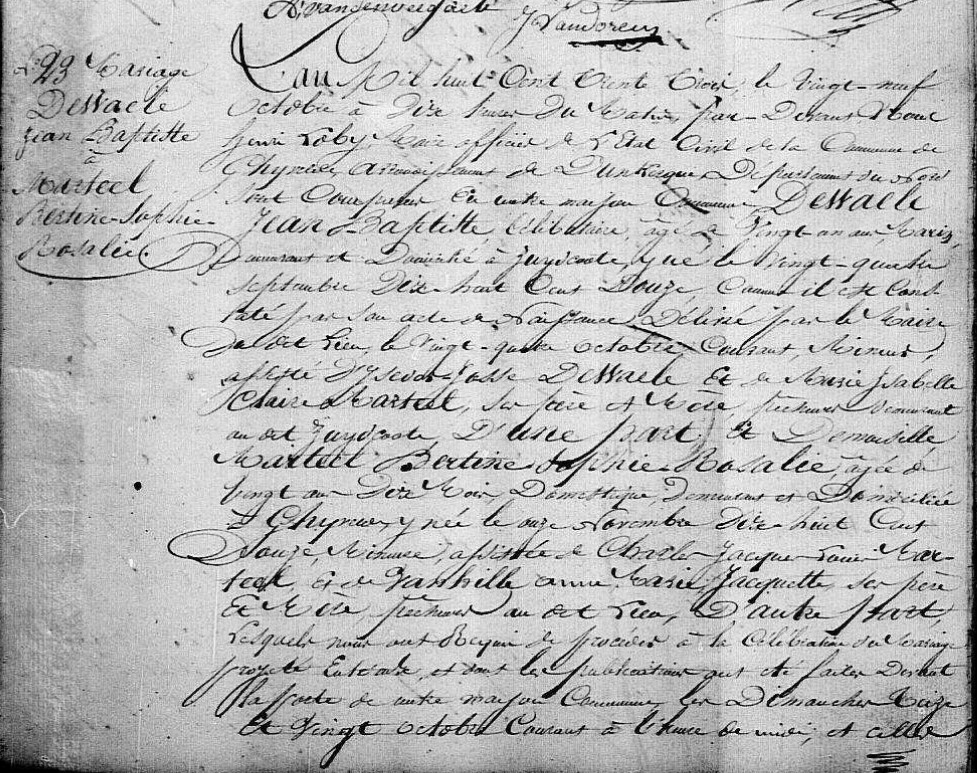 A. Vandenweegaete
J. Vandoren
N° 23 Mariage
Dewaele
Jean Baptiste
à
Marteel
Bertine-Sophie-
Rosalie.
L'an Mil huit Cent Trente Trois, le Vingt-neuf
octobre à Dix heures du Matin, par-Devant Nous
henri Loby, Maire officier de L'Etat Civil de la Commune de
Ghyvelde, arrondissement de Dunkerque, Département du Nord
sont Comparus En notre maison Commune, Dewaele
Jean-Baptiste Célibataire, âgé de Vingt-un ans, Marin,
Demeurant et Domicilié à Zuydcoote, y né le Vingt-quatre
septembre Dix-huit Cent Douze, Comme il est Cons-
taté par son acte de Naissance Délivré par le Maire
du dit Lieu, le Vingt-quatre octobre, Courant, Mineur,
assisté D' Josse Dewaele Et de Marie Isabelle
Claire Marteel, ses père et Mère, pêcheurs Demeurant
au dit Zuydcoote, D'une part, Et Demoiselle
Marteel Bertine Sophie-Rosalie, âgée de
Vingt ans Dix Mois, Domestique, Demeurant et Domiciliée
à Ghyvelde, y née le onze Novembre Dix-huit Cent
Douze, Mineure, assistée de Charles Jacques Louis Mar-
teel, Et de Vanhille anne Marie Jacquette, ses père
Et Mère, pêcheurs au dit Lieu, D'autre part,
Lesquels nous ont Requis de procéder à la Célébration du Mariage
projeté Entr'eux, et dont les publications ont été faites Devant
la porte de notre maison Commune, les Dimanches Treize
Et Vingt octobre Courant à l'heure de midi, et celles